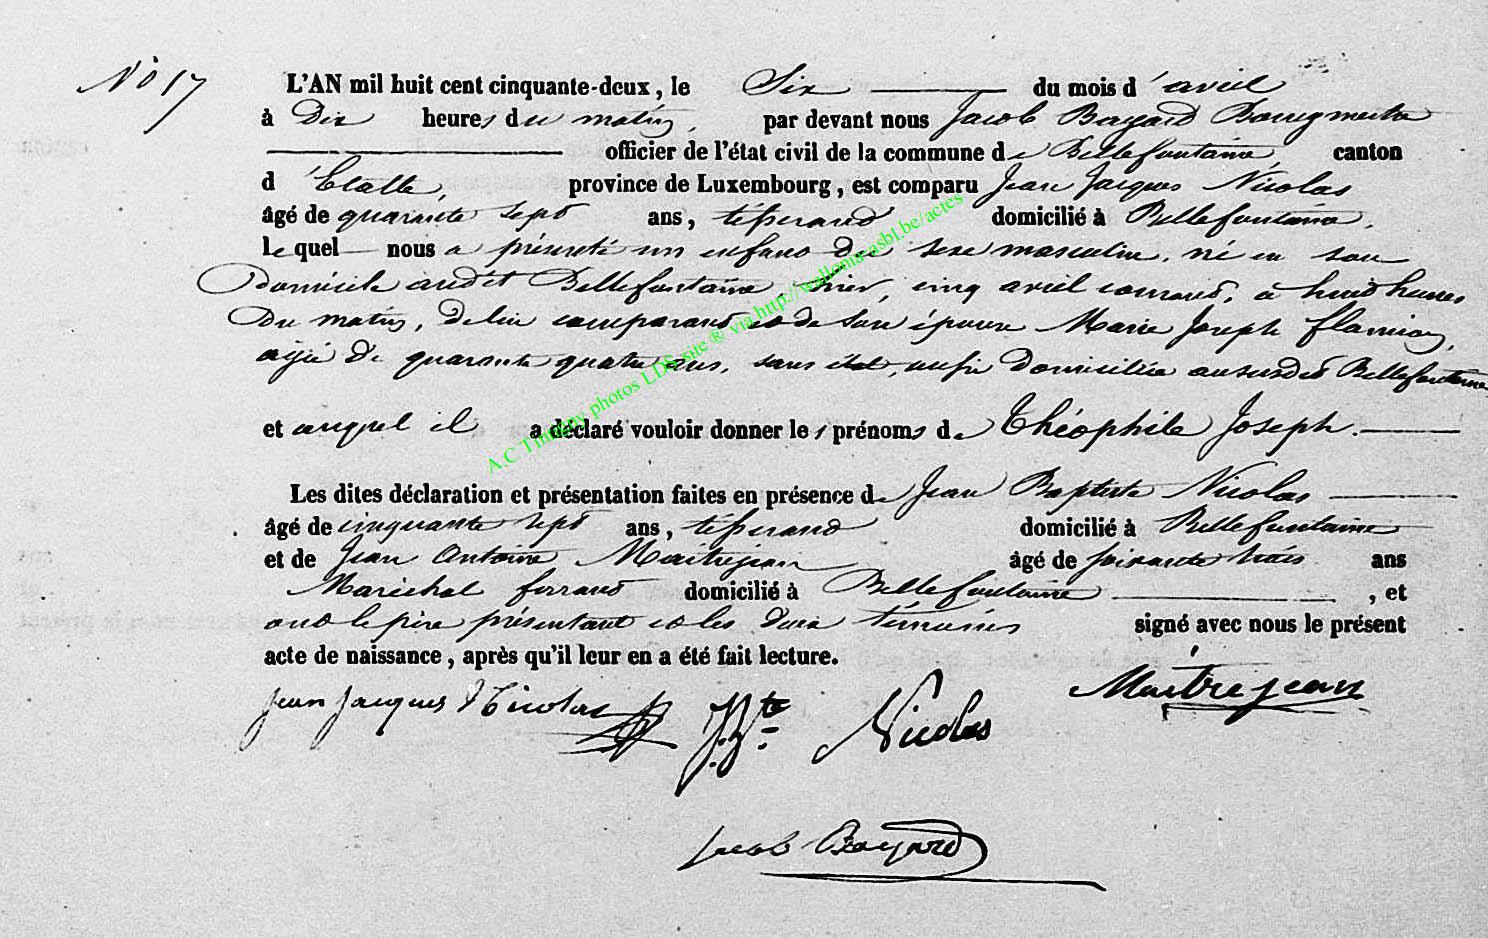 N° 17
L'AN mil huit cent cinquante-deux, le Six du mois d'avril
à Dix heures du matin, par devant nous Jacob Bayard Bourgmestre
officier de l'état civil de la commune de Bellefontaine, canton
d'Etalle, province de Luxembourg, est comparu Jean Jacques Nicolas
âgé de quarante sept ans, tisserand domicilié à Bellefontaine,
lequel nous a présenté un enfant du sexe masculin, né en son
Domicile audit Bellefontaine, hier, cinq avril courant, à huit heures
Du matin, de lui comparant et de son épouse Marie Joseph flamion,
agée de quarante quatre ans, sans état, aussi Domiciliée au susdit Bellefontaine
et auquel il a déclaré vouloir donner les prénoms de Théophile Joseph.
Les dites déclaration et présentation faites en présence de Jean Baptiste Nicolas
âgé de cinquante sept ans, tisserand domicilié à Bellefontaine
et de Jean Antoine Maitrejean âgé de soixante trois ans
Maréchal ferrant domicilié à Bellefontaine, et
ont le père présentant et les deux témoins signé avec nous le présent
acte de naissance, après qu'il leur en a été fait lecture.
Jean Jacques Nicolas J. Bte Nicolas Maitrejean
Jacob Bayard
A.C Tintigny photos LDS site ® via http://wallonia-asbl.be/actes